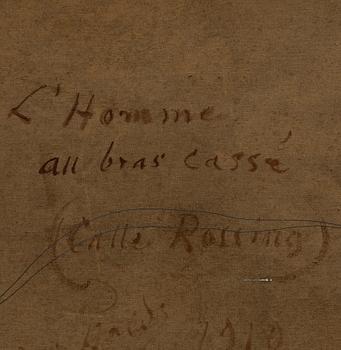 L'Homme
au bras cassé
(Calle Rossing)
1910